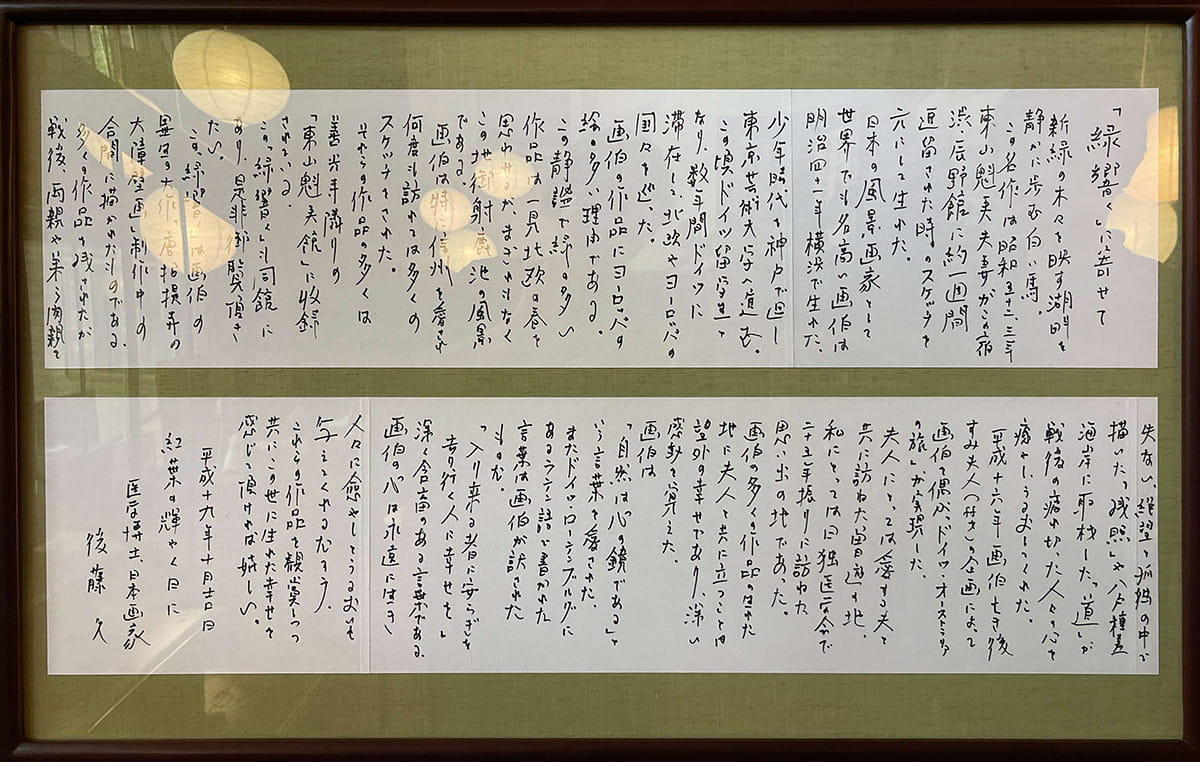 「緑響く」に寄せて
新緑の木々を映す湖畔を
静かに歩む白い馬。
この名作は昭和五十二、三年
東山魁夷夫妻がこの宿
渋・辰野館に約一週間
逗留された時のスケッチを
元にして生れた。
日本の風景画家として
世界でも名高い画伯は
明治四十一年横浜で生れた。
少年時代を神戸で過し
東京芸術大学へ進む。
この頃ドイツ留学生と
なり、数年間ドイツに
滞在して北欧やヨーロッパの
国々を巡った。
画伯の作品にヨーロッパの
絵の多い理由である。
この静謐で緑の多い
作品は一見北欧の春を
思わせるが、まぎれもなく
この地御射鹿池の風景
である。
画伯は特に信州を愛され
何度も訪れては多くの
スケッチをされた。
それらの作品の多くは
善光寺隣りの
「東山魁夷館」に収録
されている。
この「緑響く」も同館に
あり、是非御覧頂き
たい。
この「緑響く」は画伯の
畢生の大作「唐招提寺の
大障壁画」制作中の
合間に描かれたものである。
多くの作品を残されたが
戦後、両親や弟ら肉親を
失ない、絶望と孤独の中で
描いた「残照」や八戸種差
海岸に取材した「道」が
戦後の疲れ切った人々の心を
癒やし、うるおしてくれた。
平成十六年画伯亡き後
すみ夫人の企画によって
画伯を偲ぶ「ドイツ・オーストリア
の旅」が実現した。
夫人にとっては愛する夫と
共に訪ねた曽遊の地、
私にとっては日独医学会で
二十五年振りに訪ねた
思い出の地であった。
画伯の多くの作品の生れた
地に夫人と共に立つことは
望外の幸せであり、深い
感動を覚えた。
画伯は
「自然は心の鏡である」と
いう言葉を愛された。
またドイツ・ローテンブルグに
あるラテン語で書かれた
言葉は画伯が訳された
ものだ。
「入り来る者に安らぎを
去り行く人に幸せを」
深く含畜のある言葉である。
画伯の「心」は永遠に生き
人々に癒やしとうるおいを
与えてくれるだろう。
これらの作品を観賞しつつ
共にこの世に生れた幸せを
感じて頂ければ嬉しい。
平成十九年十月吉日
紅葉の輝やく日に
医学博士、日本画家
後藤久